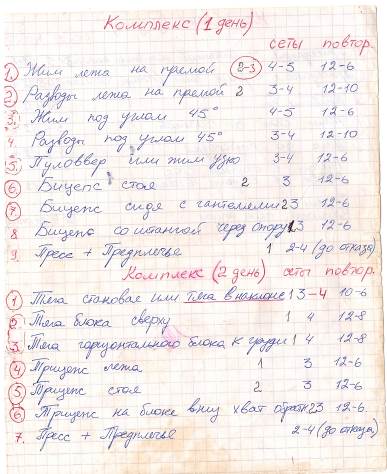 Комплекс (1 день)
сеты повтор.
1. Жим лежа на прямой 2-3 4-5 12-6
2. Разводы лежа на прямой 2 3-4 12-10
3. Жим под углом 45° 4-5 12-6
4. Разводы под углом 45° 3-4 12-10
5. Пуловвер или жим узко 3-4 12-6
6 Бицепс стоя 2 3 12-6
7 Бицепс сидя с гантелями 2 3 12-6
8 Бицепс со штангой через опору 1 3 12-6
9. Пресс + Предплечье 1 2-4 (до отказа)
Комплекс (2 день) сеты повтор.
1 Тяга становая или тяга в наклоне 1 3-4 10-6
2 Тяга блока сверху 1 4 12-8
3 Тяга горизонтального блока к груди 1 4 12-8
4 Трицепс лежа 1 3 12-6
5 Трицепс стоя 2 3 12-6
6 Трицепс на блоке вниз хват обратн 2 3 12-6.
7. Пресс + Предплечье 2-4 (до отказа)